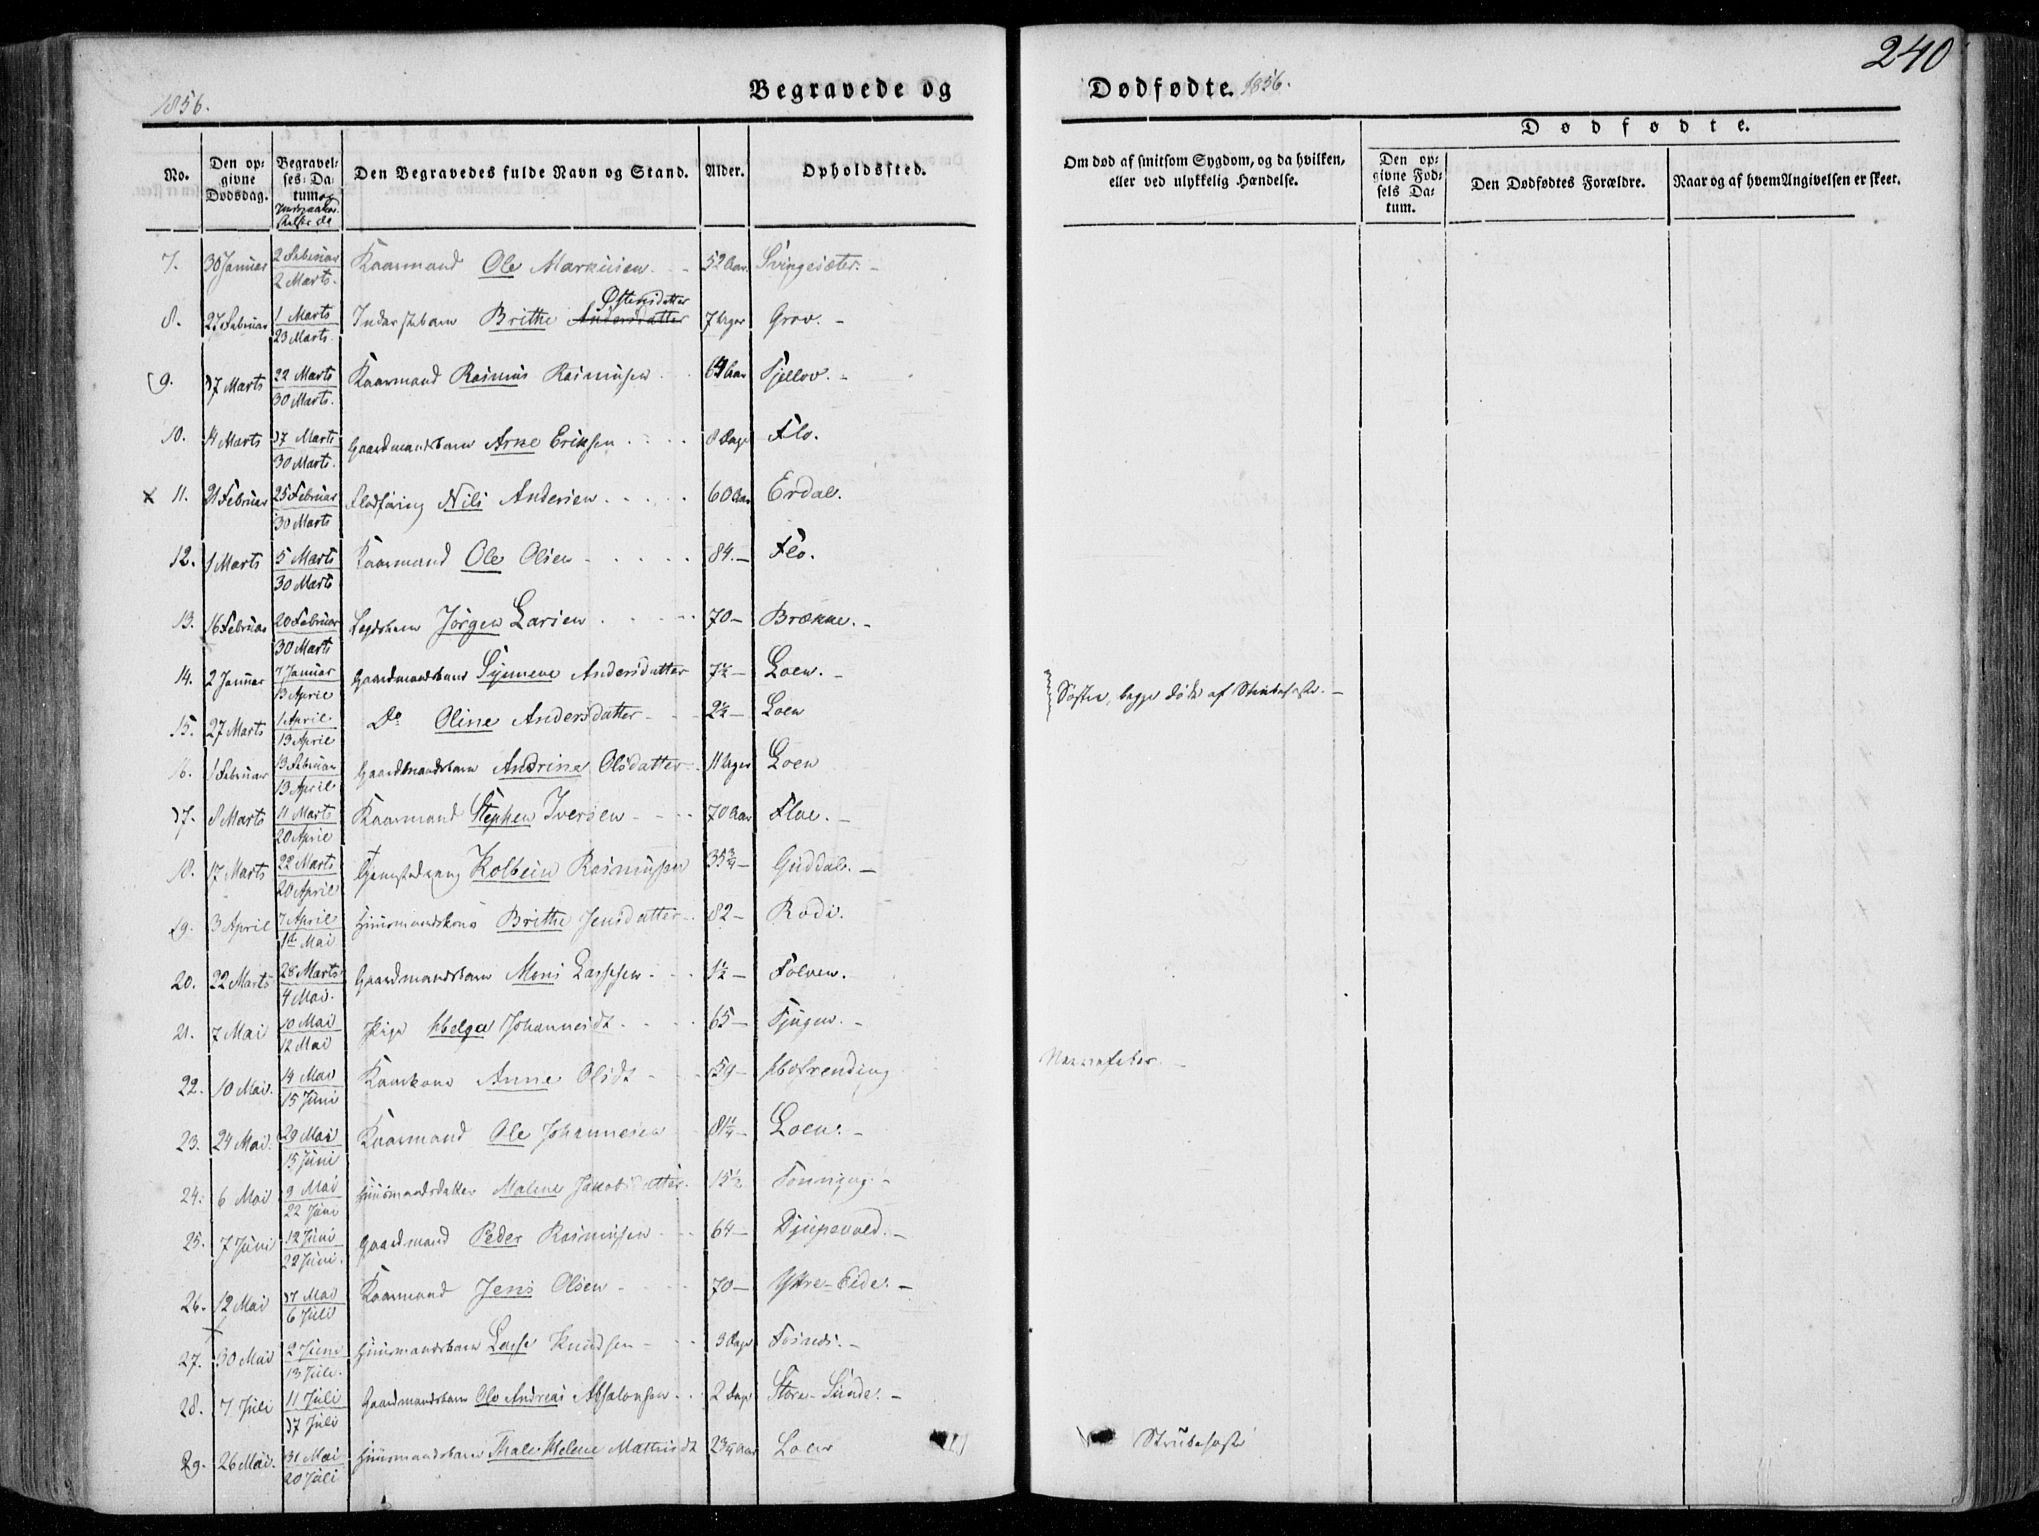 240
1856. Begravede og Dødfødte. 1856.
No. Den opgivne Dødsdag. Begravelses-Datum og Den Begravedes fulde Navn og Stand. Alder. Opholdssted. Om død af smitsom Sygdom, og da hvilken, eller ved ulykkelig Hændelse. Dødfødte. Den opgivne Fødsels Datum. Den Dødfødtes Forældre. Naar og af hvem Angivelsen er skeet.
7. 30 Januar 2 Februar 2 Marts. Kaarmand Ole Markusen 52 Aar Svingesæter. -
8. 27 Februar 1 Marts 23 Marts. Inderstebarn Brithe Andersdatter Østensdatter 7 Uger Grov. -
9. 17 Marts 22 Marts 30 Marts. Kaarmand Rasmus Rasmussen 64 Aar Fjellov. -
10. 14 Marts 17 Marts 30 Marts. Gaardmandsbarn Arne Eriksen 8 Dage Flo.
x 11. 21 Februar 25 Februar 30 Marts Fladføring Nils Andersen 60 Aar Erdal.
12. 1 Marts 5 Marts 30 Marts Kaarmand Ole Olsen 84. - Flo.
13. 16 Februar 20 Februar 30 Marts Legdslem Jørgen Larsen 70 - Brække. -
14. 2 Januar 7 Januar 13 April Gaardmandsbarn Synneve Andersdatter 7½ - Loen. - Søstre, begge døde af Strubehoste. -
15. 27 Marts 1 April 13 April Do Oline Andersdatter 2½ - Loen
16. 1 Februar 13 Februar 13 April Gaardmandsbarn Andrine Olsdatter 11 Uger Loen
17. 8 Marts 11 Marts 20 April Kaarmand Stephen Iversen 70 Aar Floe. -
18. 17 Marts 22 Marts 20 April Kolbein Rasmussen 35¾ - Guddal. -
19. 3 April 7 April 1ste Mai Huusmandskone Brithe Jensdatter 82 - Rodi.
20. 22 Marts 28 Marts 4 Mai. Gaardmandsbarn Mons Lassesen 1½ - Folven. -
21. 7 Mai 10 Mai 12 Mai Pige Helga Johannesdt 65 - Fjugen. -
22. 10 Mai. 14 Mai 15 Juni Kaarkone Anne Olsdt 59 - Mofrending Nervefeber. -
23. 24 Mai. 29 Mai 15 Juni Kaarmand Ole Johannesen 81¼ - Loen. -
24. 6 Mai 9 Mai 22 Juni Huusmandsdatter Malene Jakobsdatter. 15½ Tonning. -
25. 7 Juni 12 Juni 22 Juni. Gaardmand Peder Rasmussen 64 - Djupevold. -
26. 12 Mai 17 Mai 6 Juli Kaarmand Jens Olsen 70 - Ytre-Eide. -
27. 30 Mai 2 Juni 13 Juli. Huusmandsbarn Lasse Knudsen 3 Dage Fosnes. -
28. 7 Juli 11 Juli 17 Juli Gaardmandsbarn Ole Andreas Absalonsen 2 Dage Store-Sunde. -
29. 26 Mai. 31 Mai 20 Juli Huusmandsbarn Thale Helene Mathisdt 2¾ Aar Loen Strubehoste